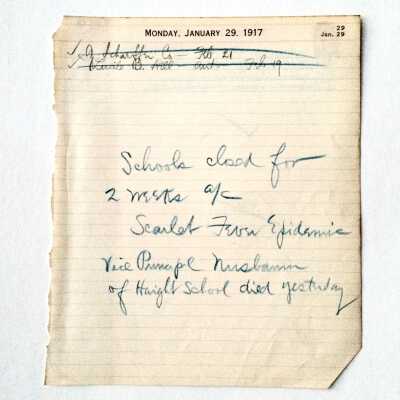 Monday, January 29, 1917
29
Jan. 29
Co — Feb 21
Feb 19
Schools closed for
2 weeks a/c
Scarlet Fever Epidemic
Vice Principl Nusbaum
of Haight School died yesterday